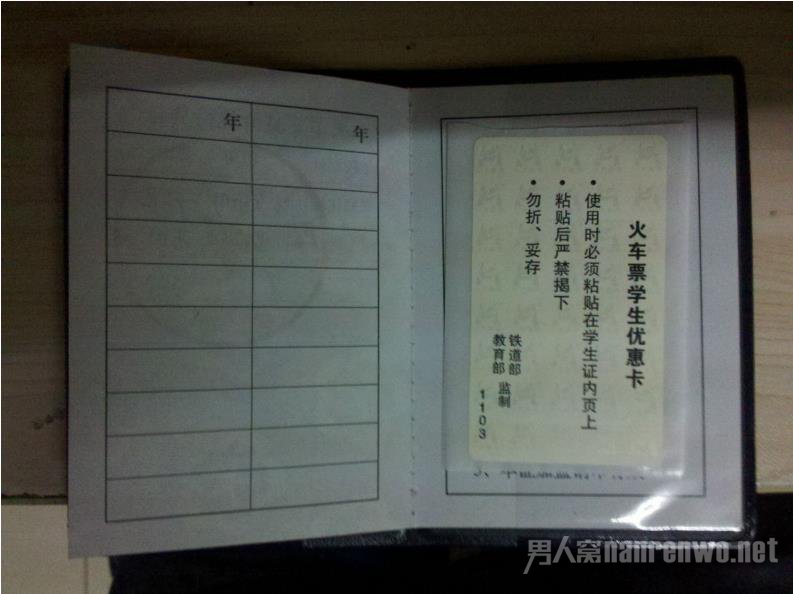 年
年
火车票学生优惠卡
•使用时必须粘贴在学生证内页上
•粘贴后严禁揭下
•勿折、妥存
铁道部
教育部 监制
1103
男人窝nanrenwo.net